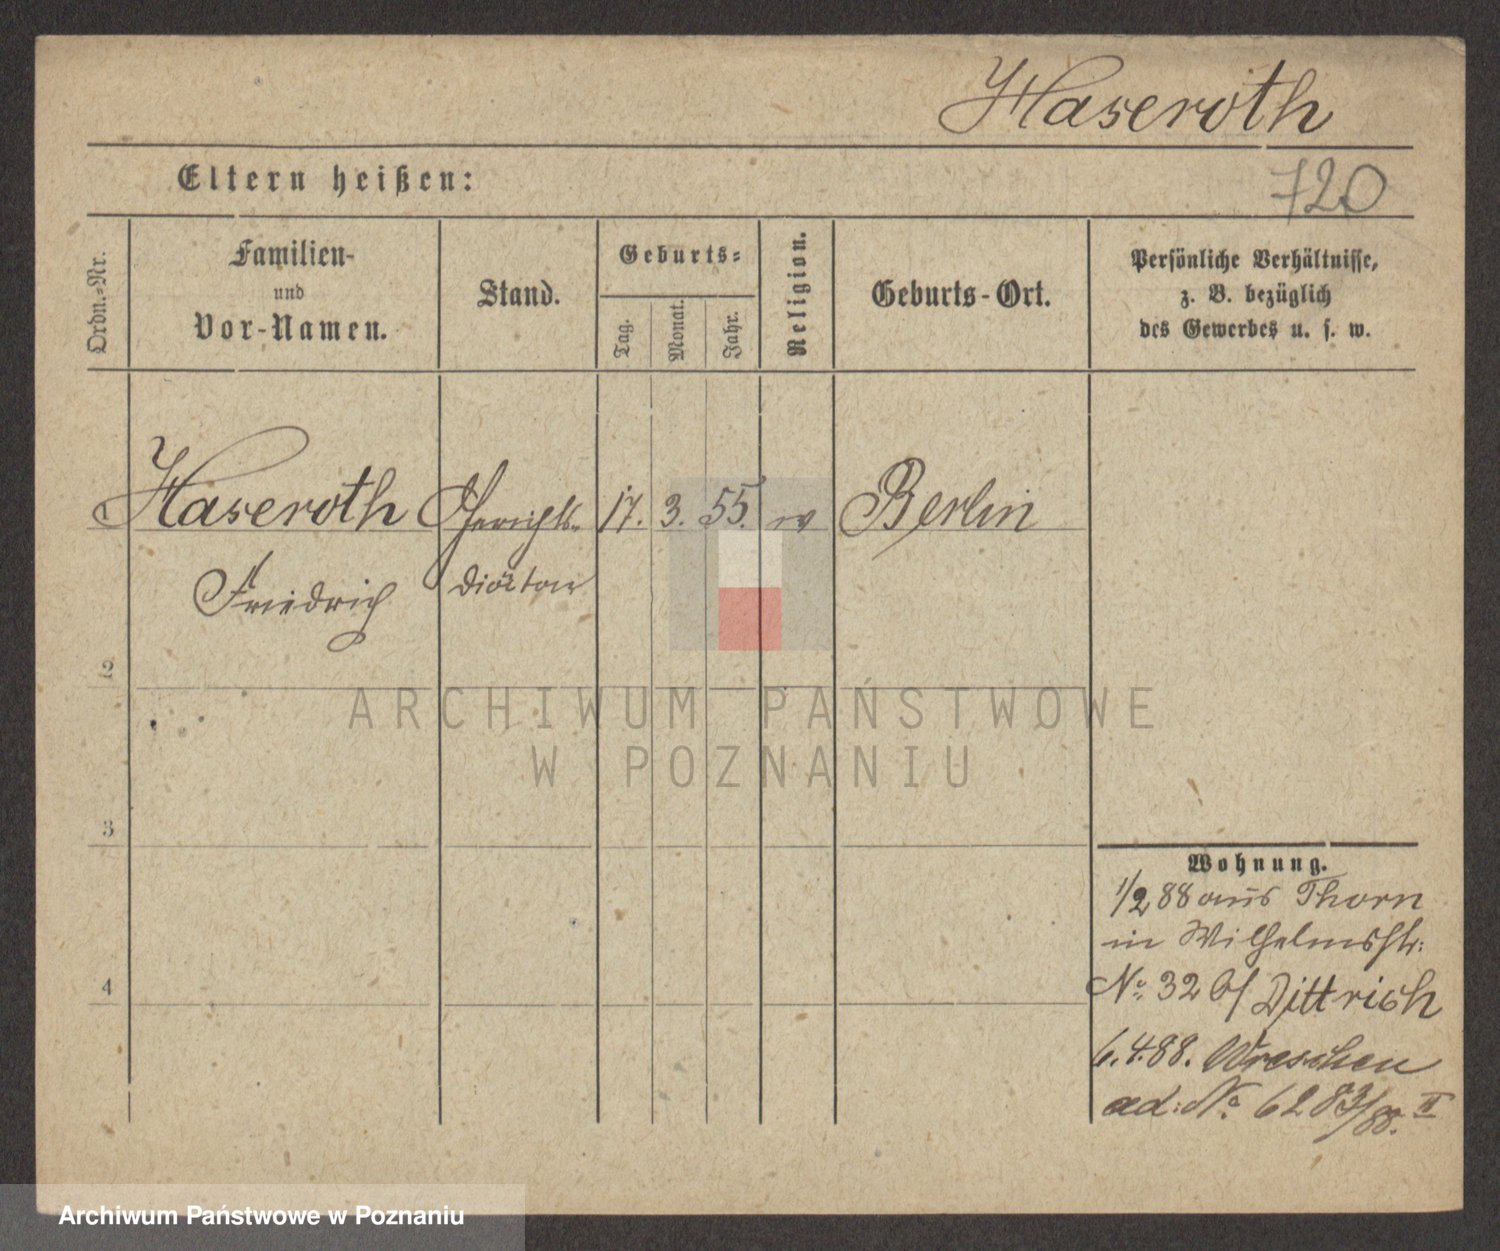 Haseroth
Eltern heißen:
720
Ordn.-Nr.
Familien-
und
Vor-Namen.
Stand.
Geburts-
Tag.
Monat.
Jahr.
Religion.
Geburts-Ort.
Persönliche Verhältnisse,
z. B. bezüglich
des Gewerbes u. s. w.
1
Haseroth
Gerichts-
17.
3.
55.
Berlin
Friedrich
Diätar
2
ARCHIWUM PAŃSTWOWE
W POZNANIU
3
Wohnung.
1/2 88 aus Thorn
in Wilhelmstr.
4
No. 32 b/ Dittrich
6.4.88. Wreschen
ad: No. 6283/88. II
Archiwum Państwowe w Poznaniu